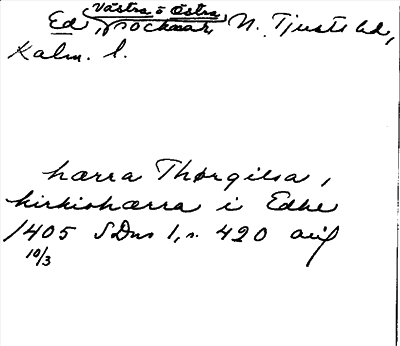 Västra o Östra
Ed, socknar, N. Tjusts hd,
Kalm. l.
harra Thørgilsa,
kirkioharra i Edhe
1405 SDns 1, s. 420 avs
10/3